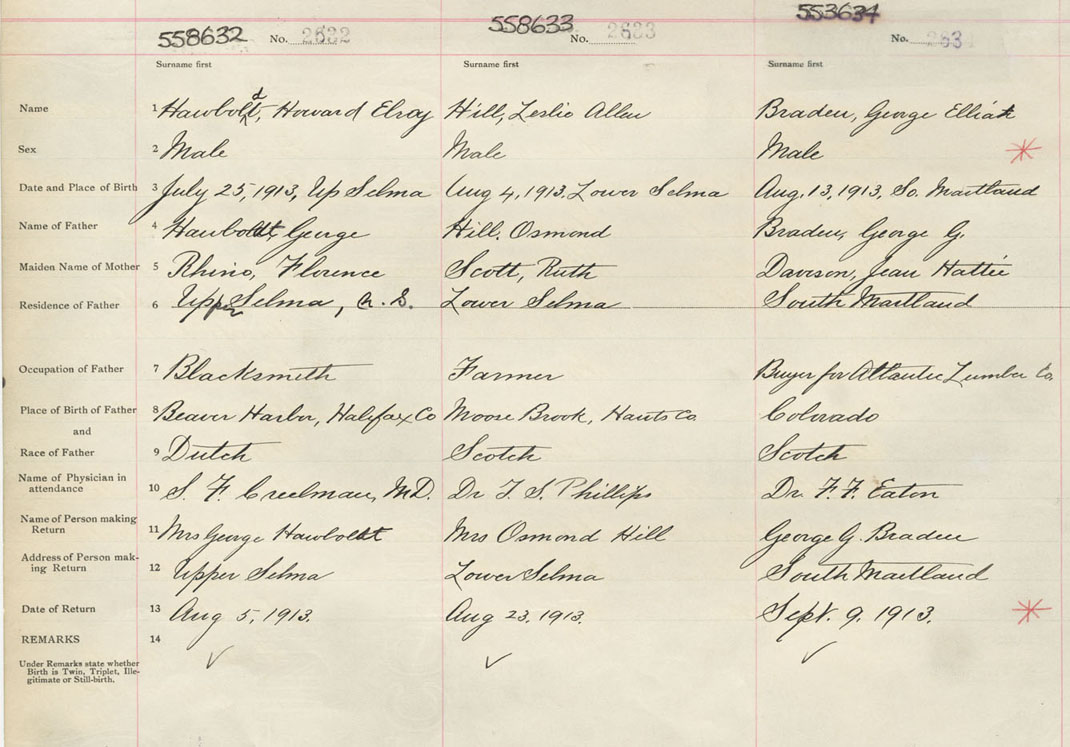 558632 No. 2632 558633 No. 2633 553634 No. 2634
Surname first Surname first Surname first
Name 1 Hawboldt, Howard Elroy Hill, Leslie Allen Braden, George Elliott
Sex 2 Male Male Male
Date and Place of Birth 3 July 25, 1913, Up Selma Aug 4, 1913. Lower Selma Aug. 13, 1913, So. Maitland
Name of Father 4 Hawboldt, George Hill. Osmond Braden, George G.
Maiden Name of Mother 5 Rhino, Florence Scott, Ruth Davison, Jean Hattie
Residence of Father 6 Upper Selma, N. S. Lower Selma South Maitland
Occupation of Father 7 Blacksmith Farmer Buyer for Atlantic Lumber Co.
Place of Birth of Father 8 Beaver Harbor, Halifax Co Moose Brook, Hants Co. Colorado
and
Race of Father 9 Dutch Scotch Scotch
Name of Physician in
attendance 10 S. F. Creelman, M.D. Dr T. S. Phillips Dr. F. F. Eaton
Name of Person making
Return 11 Mrs George Hawboldt Mrs Osmond Hill George G. Braden
Address of Person mak-
ing Return 12 Upper Selma Lower Selma South Maitland
Date of Return 13 Aug 5, 1913. Aug 23, 1913. Sept. 9, 1913.
REMARKS 14
Under Remarks state whether
Birth is Twin, Triplet, Ille-
gitimate or Still-birth.